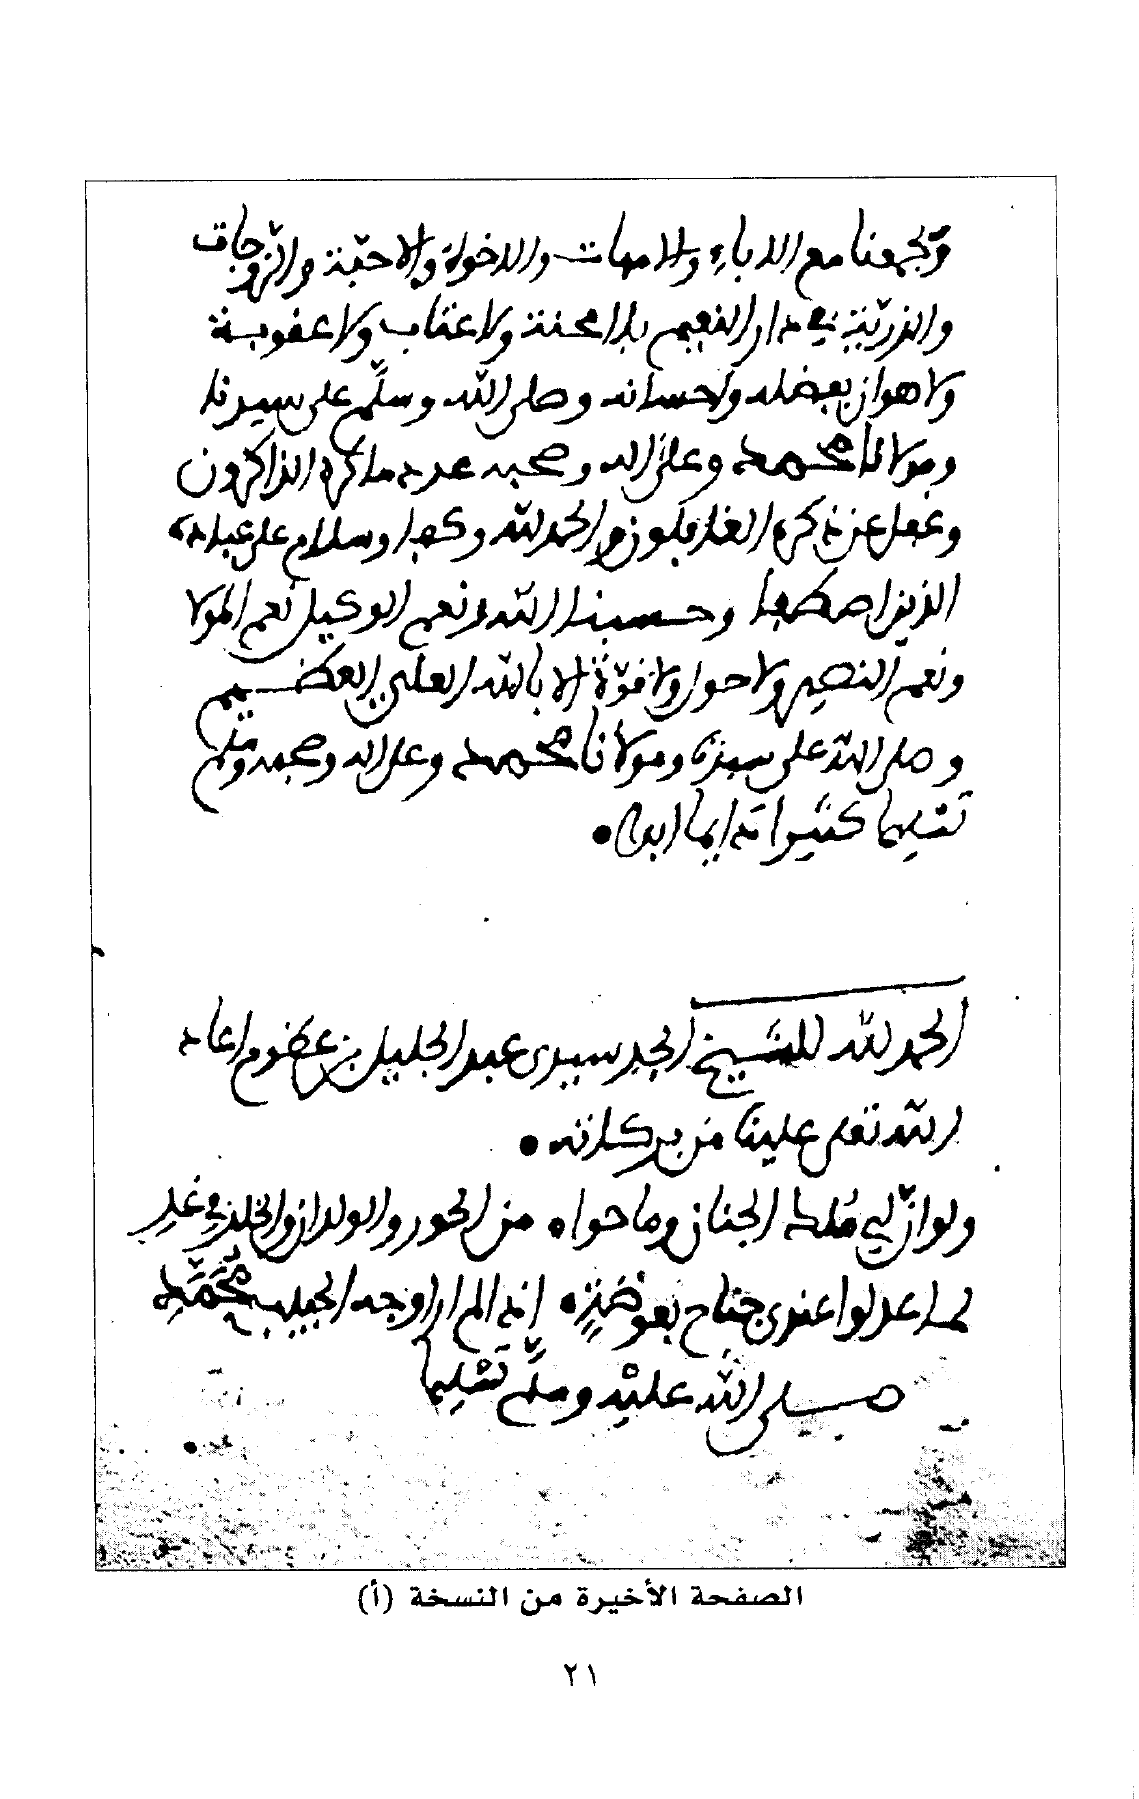 ويجمعنا مع الاباء والامهات والاخوان والاحبّة والزّوجات
والذريّة في دار النعيم بلا محنة ولا عقاب ولا عقوبة
ولا هوان بفضله واحسانه وصلى الله وسلّم على سيدنا
ومولانا محمد وعلى اله وصحبه عدد ما ذكره الذاكرون
وغفل عن ذكره الغافلون والحمد لله وكفا وسلام على عباده
الذين اصطفا وحسبنا الله ونعم الوكيل نعم المولا
ونعم النصير ولا حول ولا قوّة الا بالله العلي العظيم
وصلى الله على سيدنا ومولانا محمد وعلى اله وصحبه وسلم
تسليما كثيرا دايما ابدا
الحمد لله للشيخ الجد سيدي عبد الجليل بن عظوم اعاد
الله تعلى علينا من بركاته
ولو انّ لي مُلك الجنان وما حواه من الحور والولدان والخلد في غد
لما عدلوا عندي جناح بعوضةٍ اذا لم ار وجه الحبيب مُحَمَّد
صلى الله عليْه وسلّم تسْليما
الصفحة الأخيرة من النسخة (أ)
٢١